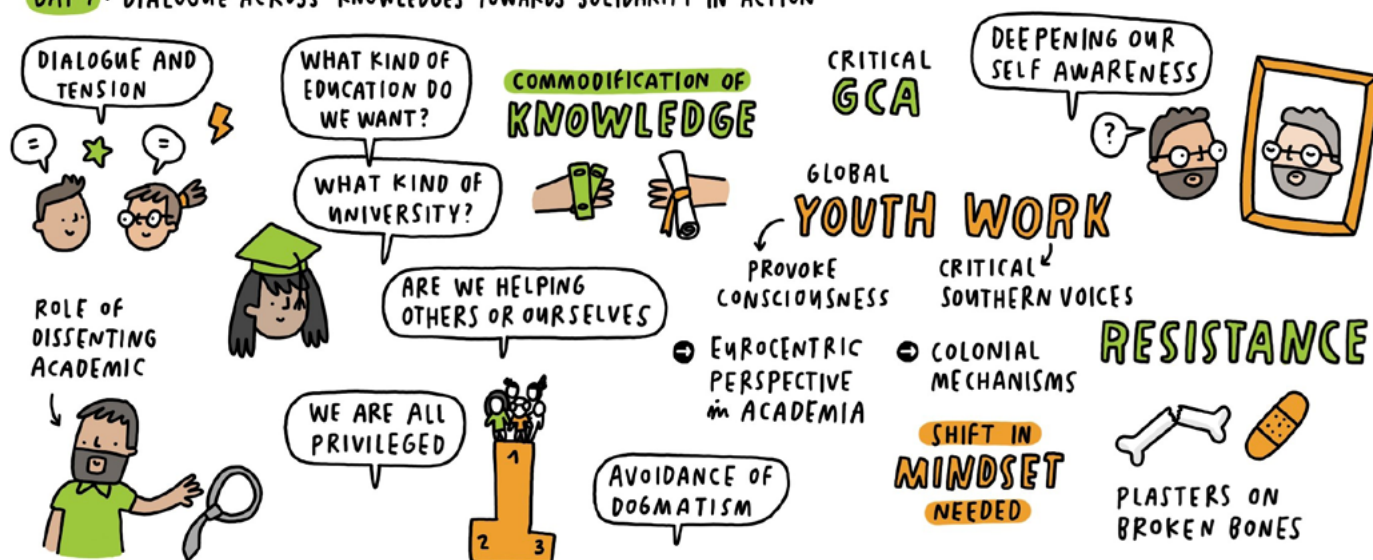 DAY 1: DIALOGUE ACROSS KNOWLEDGES TOWARDS SOLIDARITY IN ACTION
DIALOGUE AND
TENSION
WHAT KIND OF
EDUCATION DO
WE WANT?
WHAT KIND OF
UNIVERSITY?
COMMODIFICATION OF
KNOWLEDGE
CRITICAL
GCA
DEEPENING OUR
SELF AWARENESS
?
GLOBAL
YOUTH WORK
PROVOKE
CONSCIOUSNESS
CRITICAL
SOUTHERN VOICES
ROLE OF
DISSENTING
ACADEMIC
ARE WE HELPING
OTHERS OR OURSELVES
EUROCENTRIC
PERSPECTIVE
in ACADEMIA
COLONIAL
MECHANISMS
RESISTANCE
WE ARE ALL
PRIVILEGED
1
2 3
AVOIDANCE OF
DOGMATISM
SHIFT IN
MINDSET
NEEDED
PLASTERS ON
BROKEN BONES